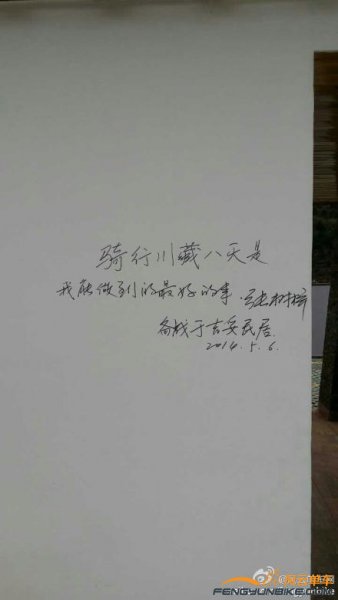 骑行川藏八天是
我能做到的最好的事
备战于吉妥民居.
2014.5.6.
单车
FENGYUNBIKE.COM